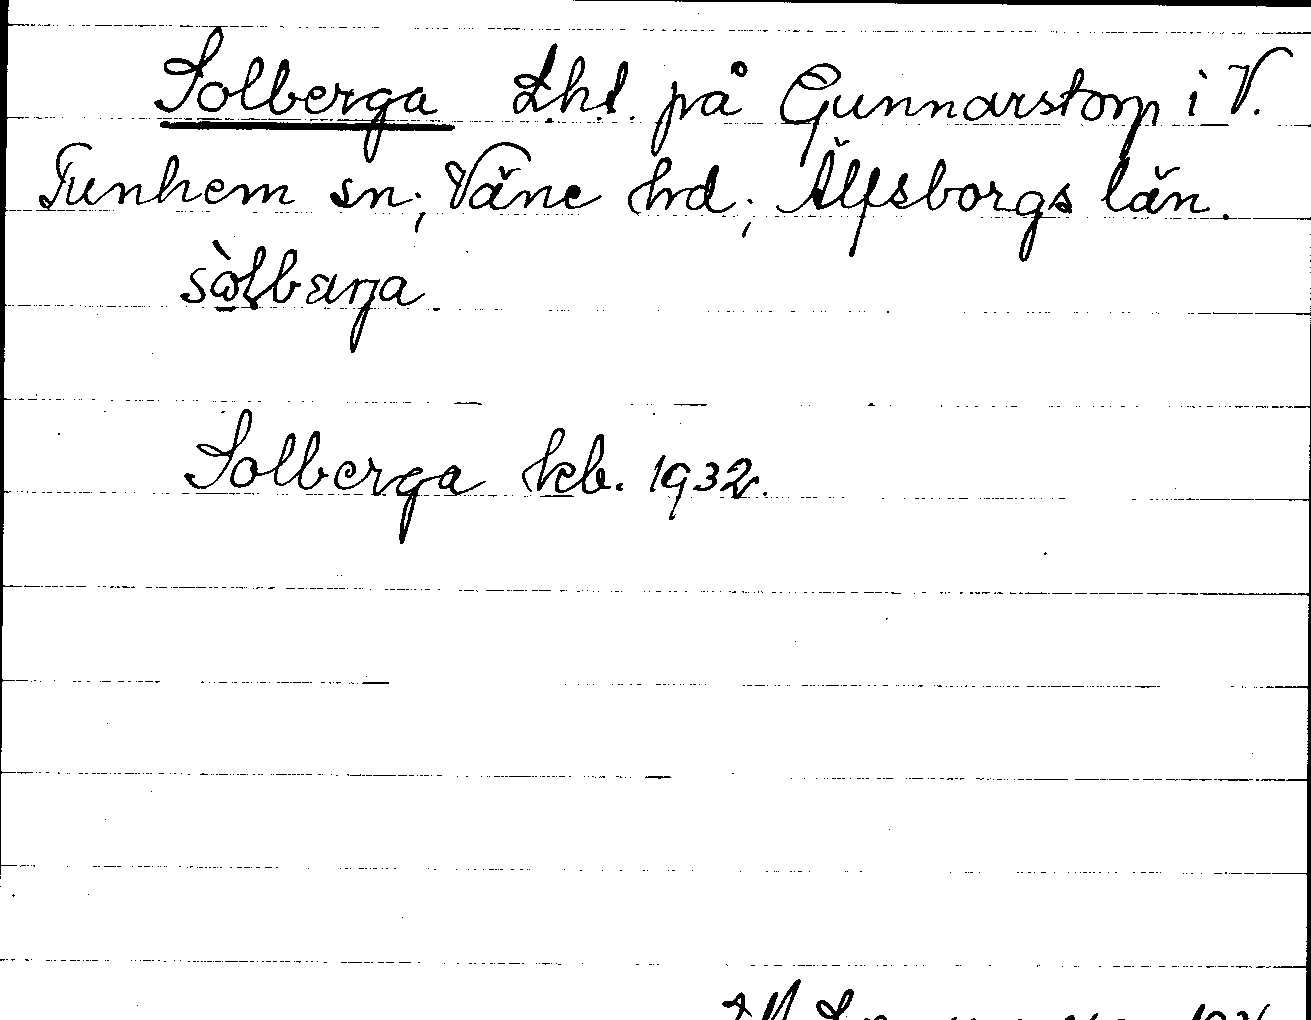 Solberga Lht. på Gunnarstorp i V.
Tunhem sn; Väne hd; Älfsborgs län.
Solberga kb. 1932.